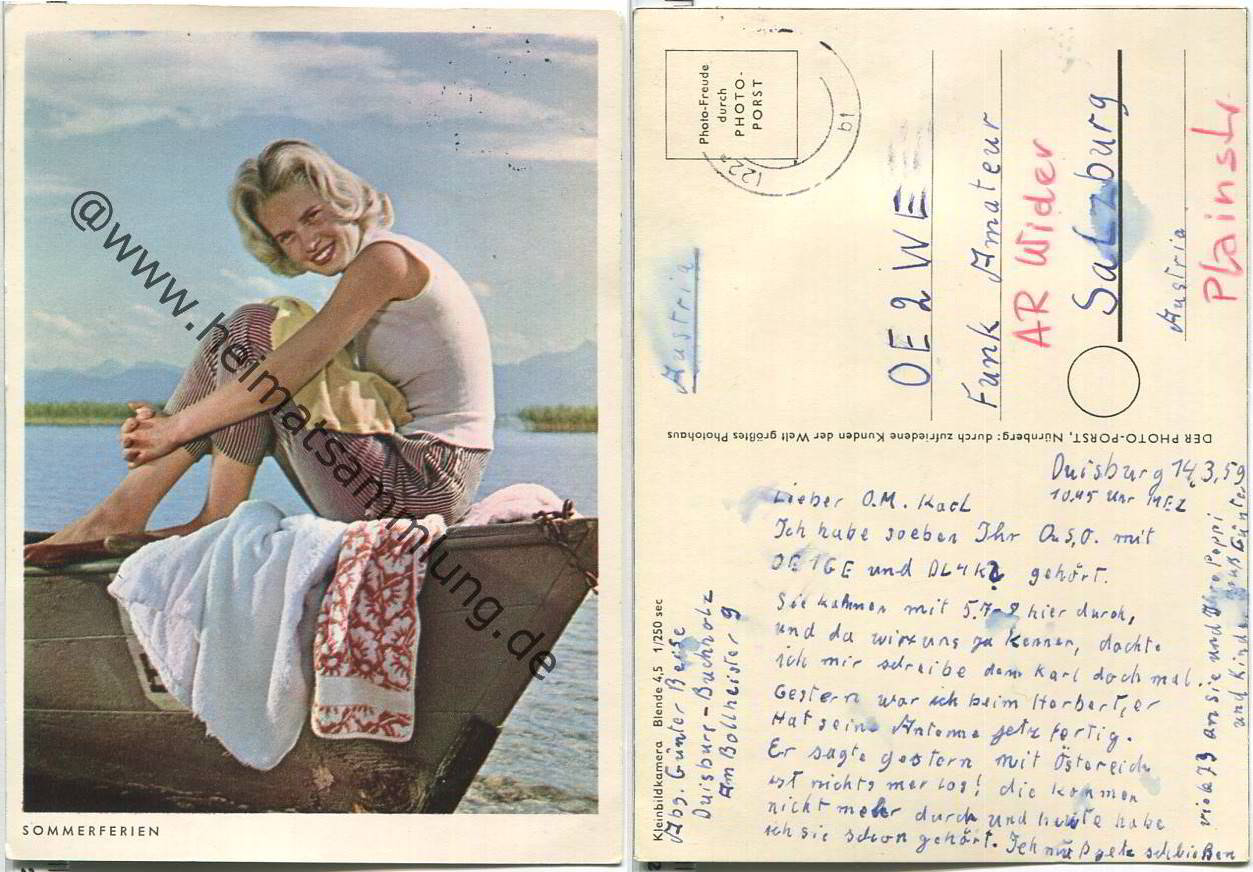 @www.heimatsammlung.de
SOMMERFERIEN
Photo-Freude
durch
PHOTO-
PORST
(22a
b1
Austria
OE 2 WE
Funk Amateur
AR Wider
Salzburg
Austria
Plainstr.
DER PHOTO-PORST, Nürnberg: durch zufriedene Kunden der Welt größtes Photohaus
Duisburg 14.3.59
10.45 Uhr MEZ
Lieber O.M. Karl
Ich habe soeben Ihr Q.S.O. mit
OE1GE und gehört.
Sie kahmen mit hier durch,
und da wir uns ja kennen, dachte
ich mir schreibe dem Karl doch mal.
Gestern war ich beim Herbert, er
Hat seine Antenne jetz fertig.
Er sagte gestern mit Östereich
ist nichts mer los! die kommen
nicht mehr durch und heute habe
ich sie schon gehört. Ich muß jetz schließen
viele 73 an sie und Ihre Peppi
und Kinder Gruß Günter
Kleinbildkamera Blende 4,5 1/250 sec
Abs. Günter
Duisburg-Buchholz
Am Bollheister 9